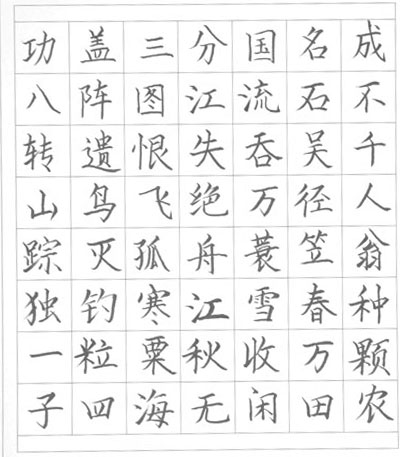 功盖三分国名成
八阵图江流石不
转遗恨失吞吴千
山鸟飞绝万径人
踪灭孤舟蓑笠翁
独钓寒江雪春种
一粒粟秋收万颗
子四海无闲田农